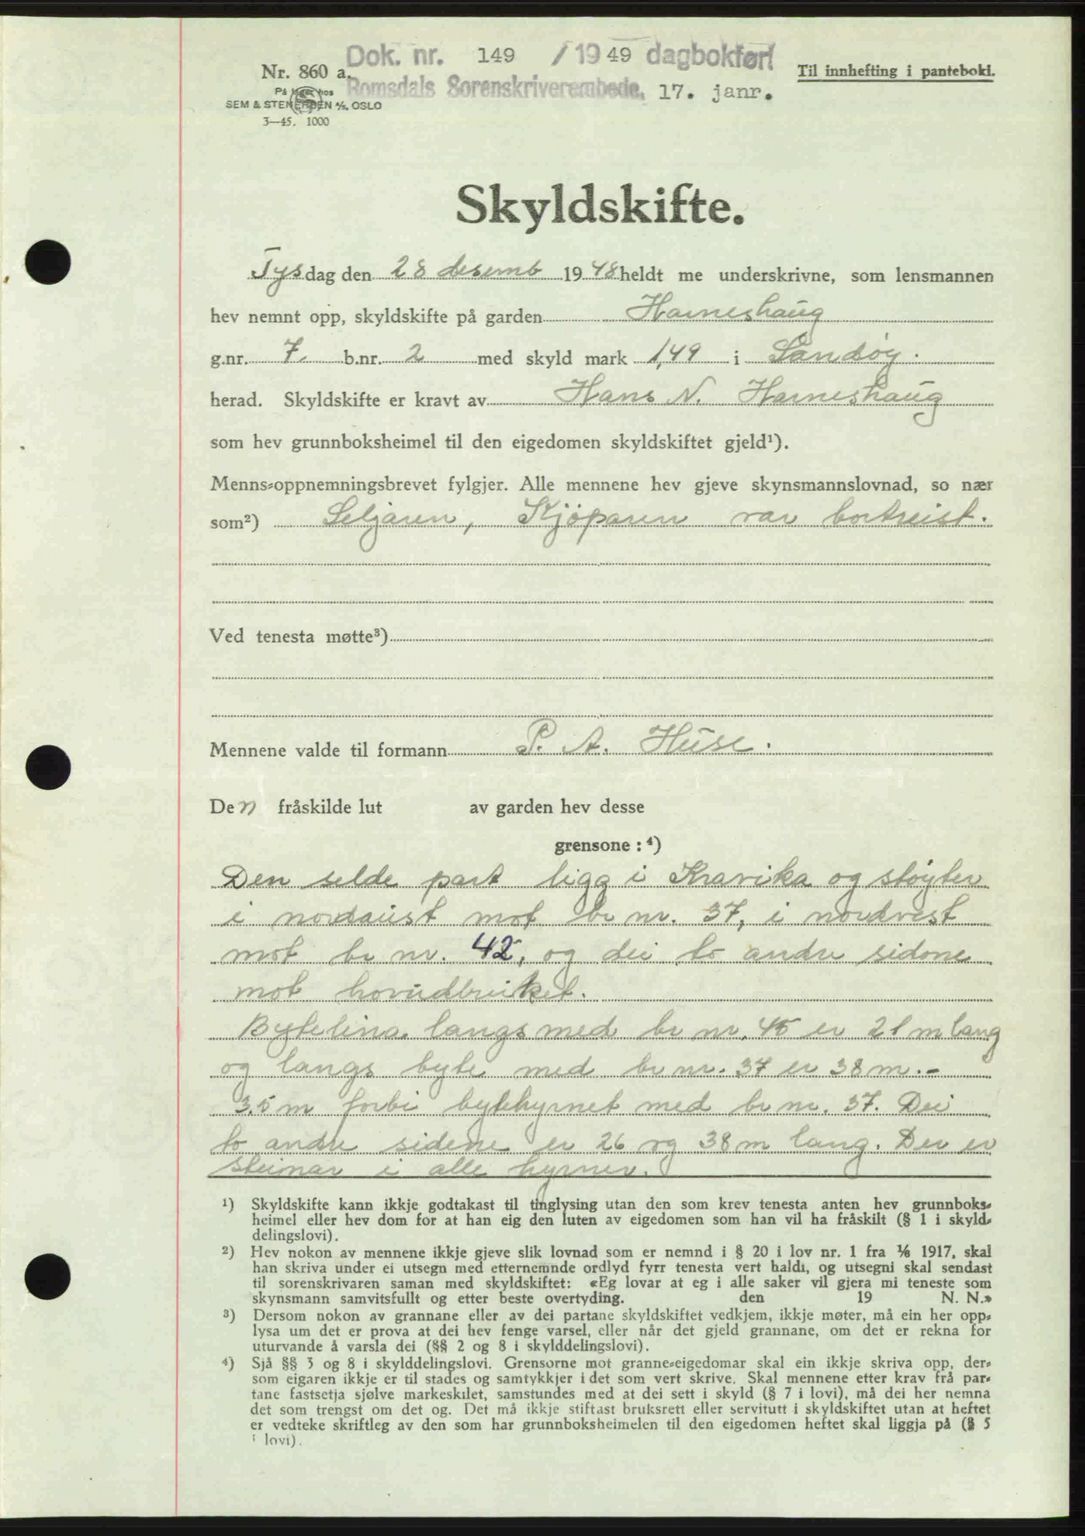 Dok. nr. 149 / 1949 dagbokført
Nr. 860 a. Romsdals Sorenskriverembede, 17. janr.
Til innhefting i panteboki.
På lager hos
SEM & STENERSEN A/S, OSLO
3—45. 1000
Skyldskifte.
Tysdag den 28 desemb 1948 heldt me underskrivne, som lensmannen
hev nemnt opp, skyldskifte på garden Harneshaug
g.nr. 7. b.nr. 2 med skyld mark 1,49 i Sandøy.
herad. Skyldskifte er kravt av Hans N. Harneshaug
som hev grunnboksheimel til den eigedomen skyldskiftet gjeld¹).
Menns=oppnemningsbrevet fylgjer. Alle mennene hev gjeve skynsmannslovnad, so nær
som²) Seljaren, Kjøparen var bortreist.
Ved tenesta møtte³)
Mennene valde til formann P. A. Huse.
Den fråskilde lut av garden hev desse
grensone: ⁴)
Den selde part ligg i Kravika og støyter
i nordaust mot br nr. 37, i nordvest
mot br nr. 42, og dei to andre sidone
mot hovudbruket.
Bytelina langs med br nr. 45 er 21 m lang
og langs byte med br nr. 37 er 38 m. -
3.5 m forbi bytehyrnet med br nr. 37. Dei
to andre sidene er 26 og 38 m lang. Der er
steinar i alle hyrner.
¹) Skyldskifte kann ikkje godtakast til tinglysing utan den som krev tenesta anten hev grunnboks=
heimel eller hev dom for at han eig den luten av eigedomen som han vil ha fråskilt (§ 1 i skyld=
delingslovi).
²) Hev nokon av mennene ikkje gjeve slik lovnad som er nemnd i § 20 i lov nr. 1 fra 1/6 1917, skal
han skriva under ei utsegn med etternemnde ordlyd fyrr tenesta vert haldi, og utsegni skal sendast
til sorenskrivaren saman med skyldskiftet: «Eg lovar at eg i alle saker vil gjera mi teneste som
skynsmann samvitsfullt og etter beste overtyding. den 19 N. N.»
³) Dersom nokon av grannane eller av dei partane skyldskiftet vedkjem, ikkje møter, må ein her opp=
lysa um det er prova at dei hev fenge varsel, eller når det gjeld grannane, om det er rekna for
uturvande å varsla dei (§§ 2 og 8 i skylddelingslovi).
⁴) Sjå §§ 3 og 8 i skylddelingslovi. Grensorne mot granne=eigedomar skal ein ikkje skriva opp, der=
som eigaren ikkje er til stades og samtykkjer i det som vert skrive. Skal mennene etter krav frå par=
tane fastsetja sjølve markeskilet, samstundes med at dei sett i skyld (§ 7 i lovi), må dei her nemna
det som trengst om det og. Det må ikkje stiftast bruksrett eller servitutt i skyldskiftet utan at heftet
er vedteke skriftleg av den som har grunnboksheimelen til den eigedomen heftet skal liggja på (§ 5
i lovi).